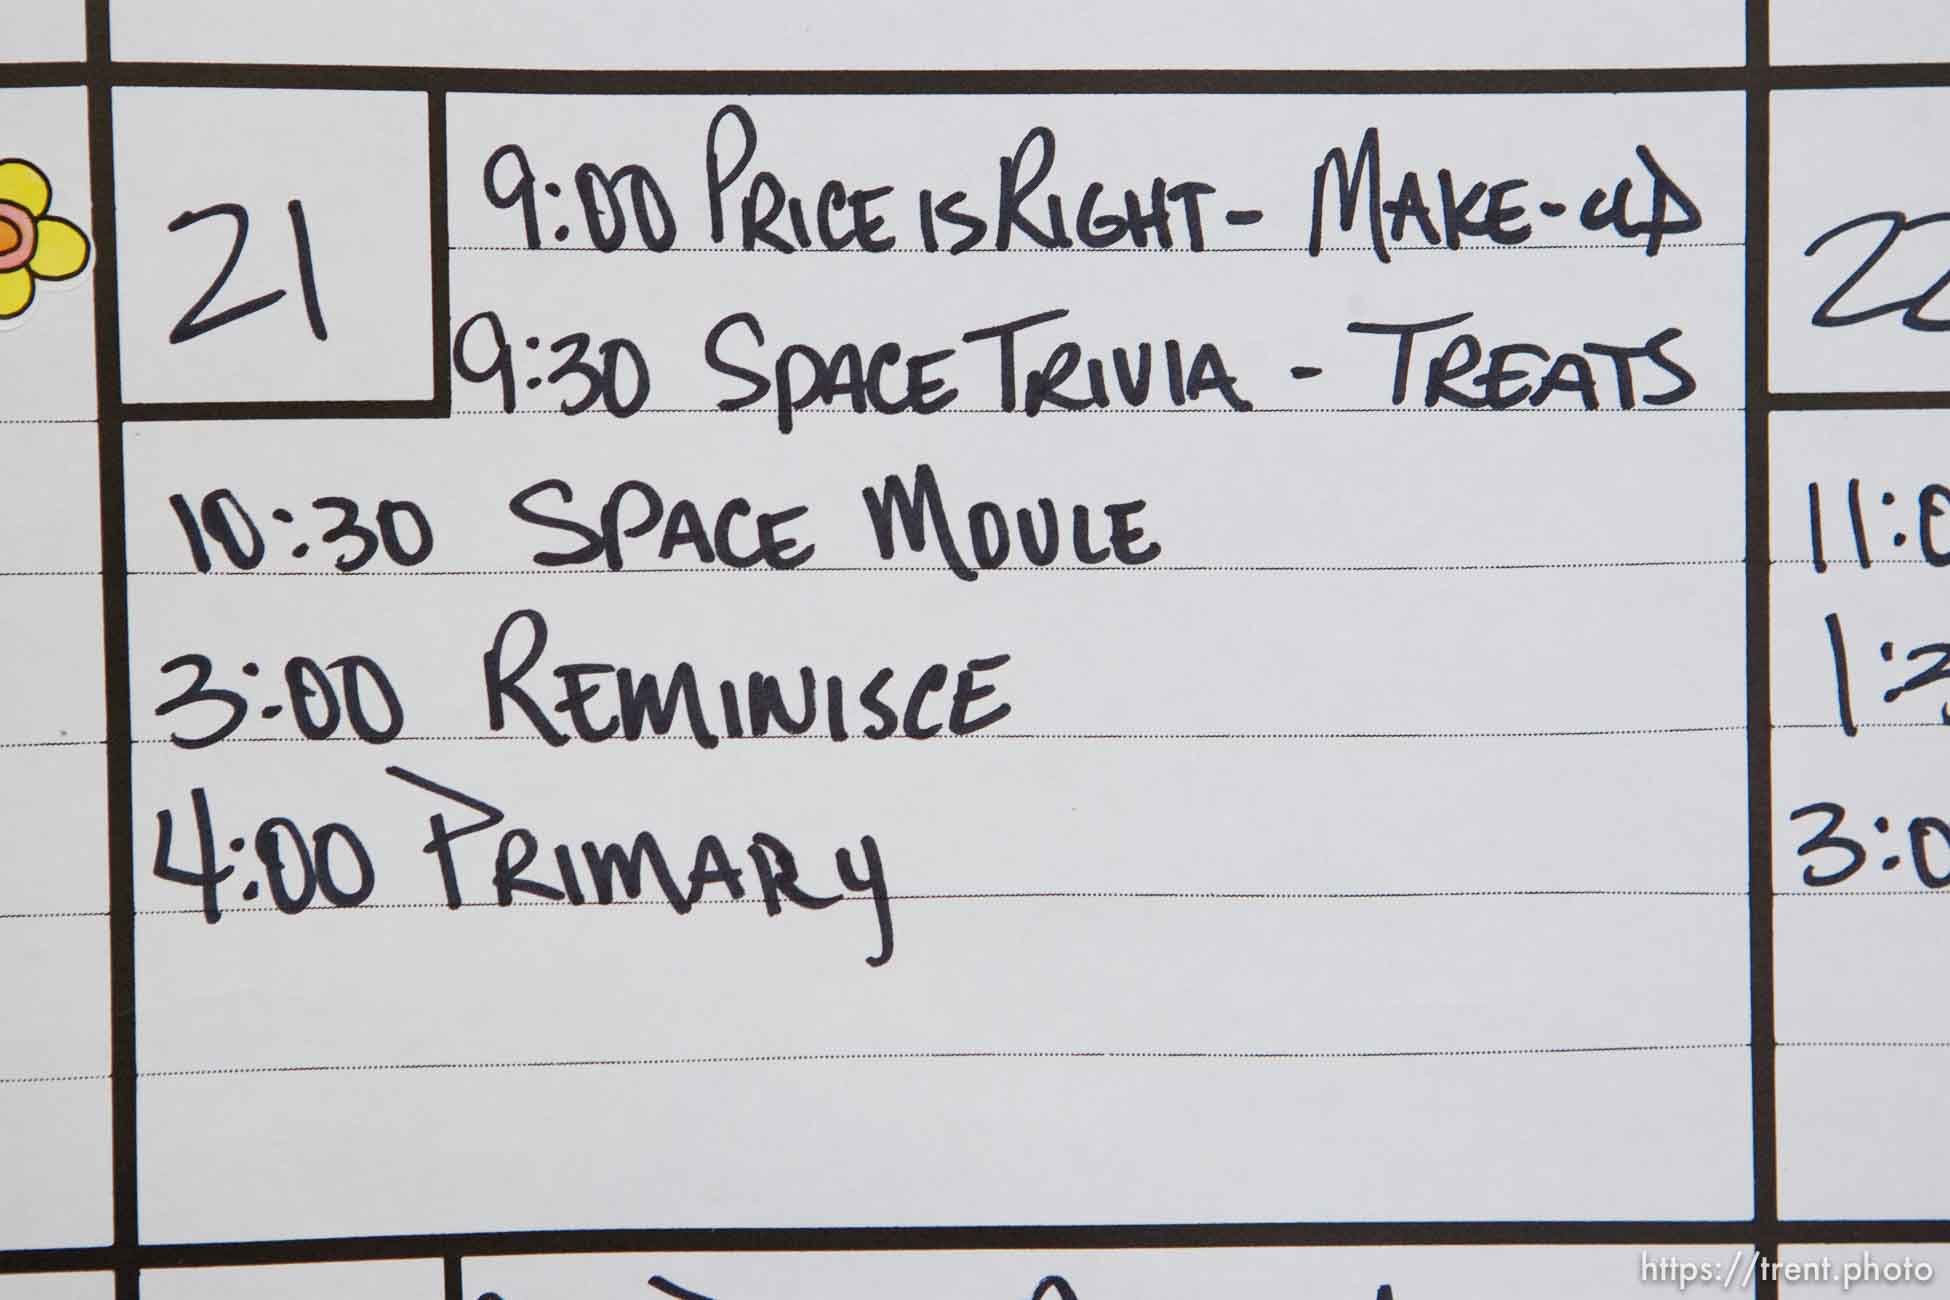 21
9:00 PRICE IS RIGHT - MAKE-UP
9:30 SPACE TRIVIA - TREATS
10:30 SPACE MOULE
3:00 REMINISCE
4:00 PRIMARY
22
11:0
1:3
3:0
https://trent.photo